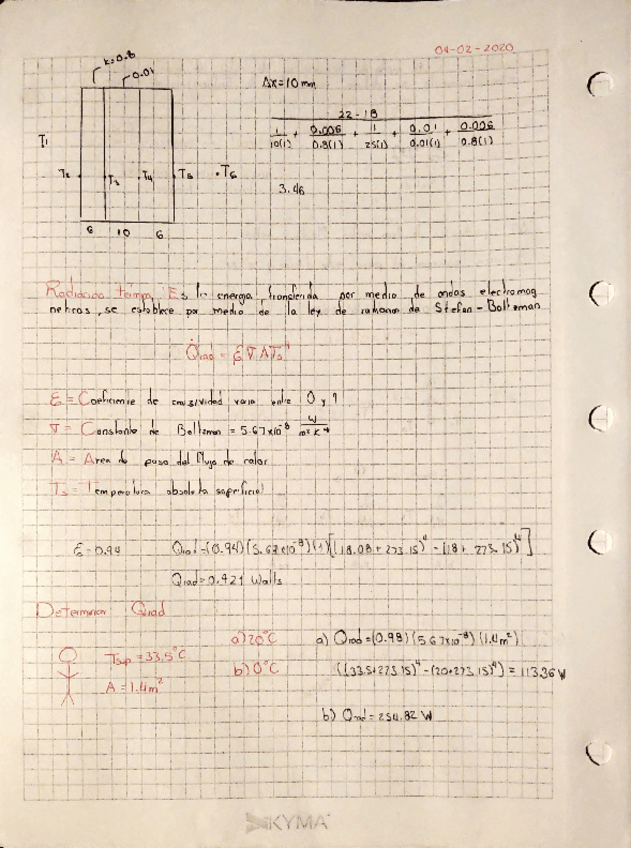 04-02-2020
k=0.8
0.01
Δx=10mm
22-18
1/10(1) + 0.006/0.8(1) + 1/25(1) + 0.01/0.01(1) + 0.006/0.8(1)
T1
T2 T3 T4 T5 T6
3.46
6 10 6
Es la energia transferida por medio de ondas electromag
neticas, se establece por medio de la ley de de Stefan-Boltzman
Q̇rad = ε σ A Ts⁴
ε = Coeficiente de emisividad varia entre 0 y 1
σ = Constante de Boltzman = 5.67x10⁻⁸ W/m²K⁴
A = Area de paso del flujo de calor
Ts = Temperatura absoluta superficial
ε=0.94 Qrad=(0.94)(5.67x10⁻⁸)(1)[(18.08+273.15)⁴ - (18+273.15)⁴]
Qrad=0.421 Watts
Determinar Qrad
Tsup = 33.5°C
A = 1.4m²
a) 20°C
b) 0°C
a) Qrad=(0.98)(5.67x10⁻⁸)(1.4m²)
((33.5+273.15)⁴-(20+273.15)⁴) = 113.36 W
b) Qrad = 254.82 W
KYMA